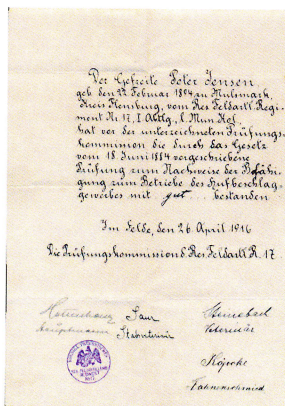 Der Gefreite Peter Jensen
geb. den 22. Februar 1894 zu Mulsmark
Kreis Flensburg, vom Res. Feldartl. Regi-
ment Nr. 17, I. Abtlg., l. Mun. Kol.
hat vor der unterzeichneten Prüfungs-
kommission die durch das Gesetz
vom 18. Juni 1884 vorgeschriebene
Prüfung zum Nachweise der Befähi-
gung zum Betriebe des Hufbeschlag-
gewerbes mit gut bestanden
Im Felde, den 26. April 1916
Die Prüfungskommission d. Res. Feldartl. R. 17.
Hauptmann
Stabsveterinär
Veterinär
Köpcke
Fahnenschmied